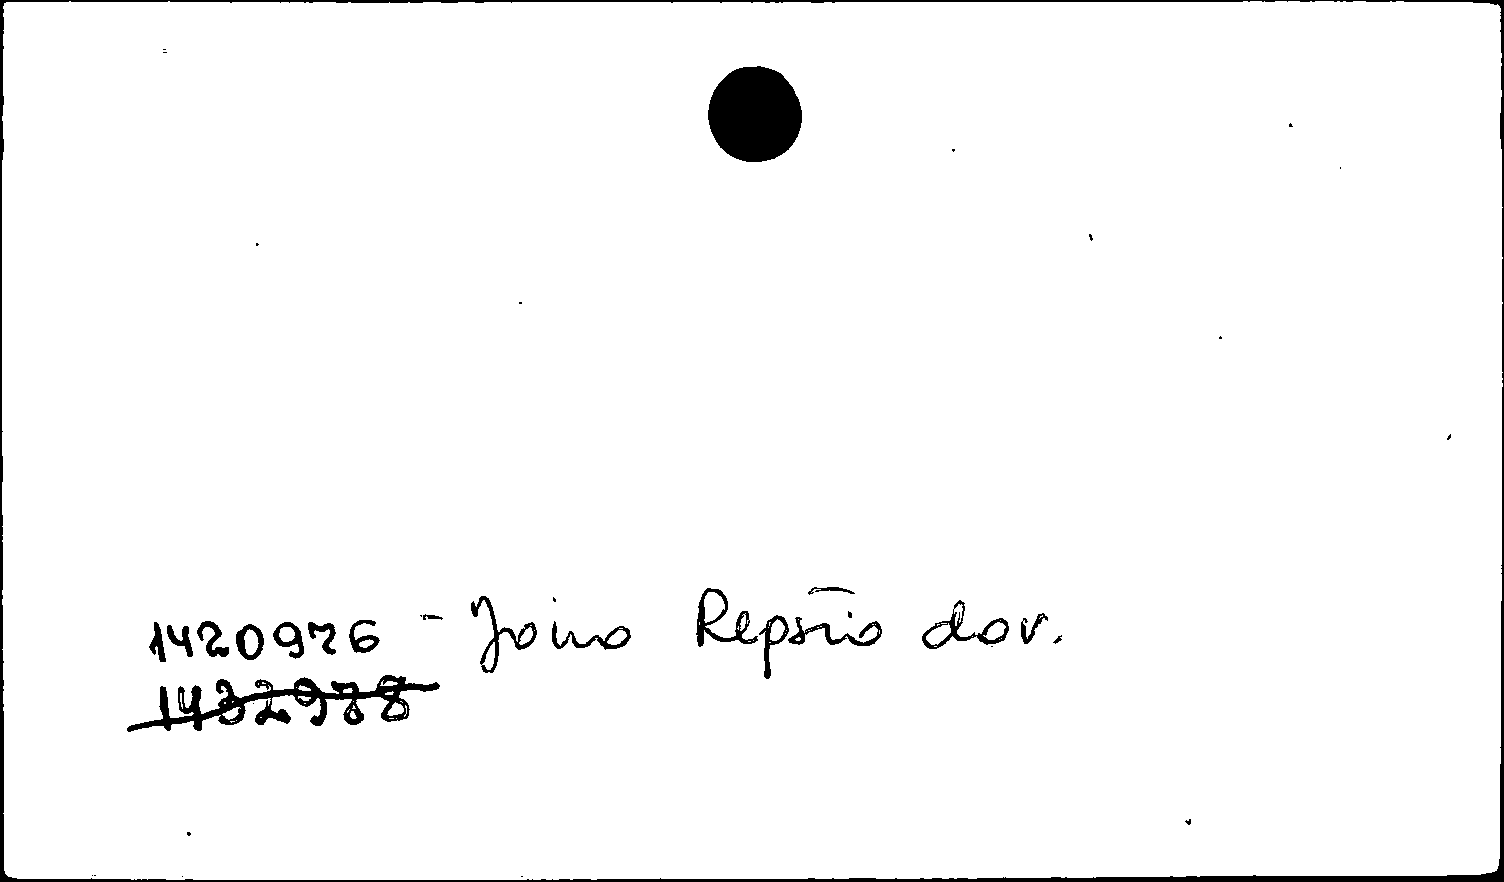 1420976 - Jāņa Repšio dov.
1432978